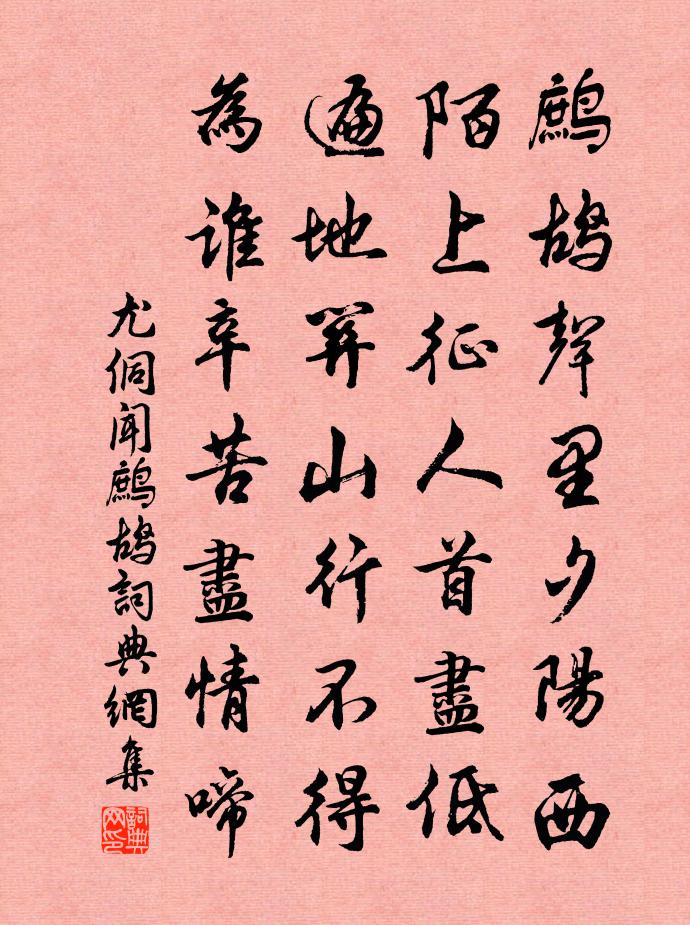 鷓鴣聲里夕陽西
陌上征人首盡低
遍地關山行不得
為誰辛苦盡情啼
尤侗聞鷓鴣詞典網集
詞典网印